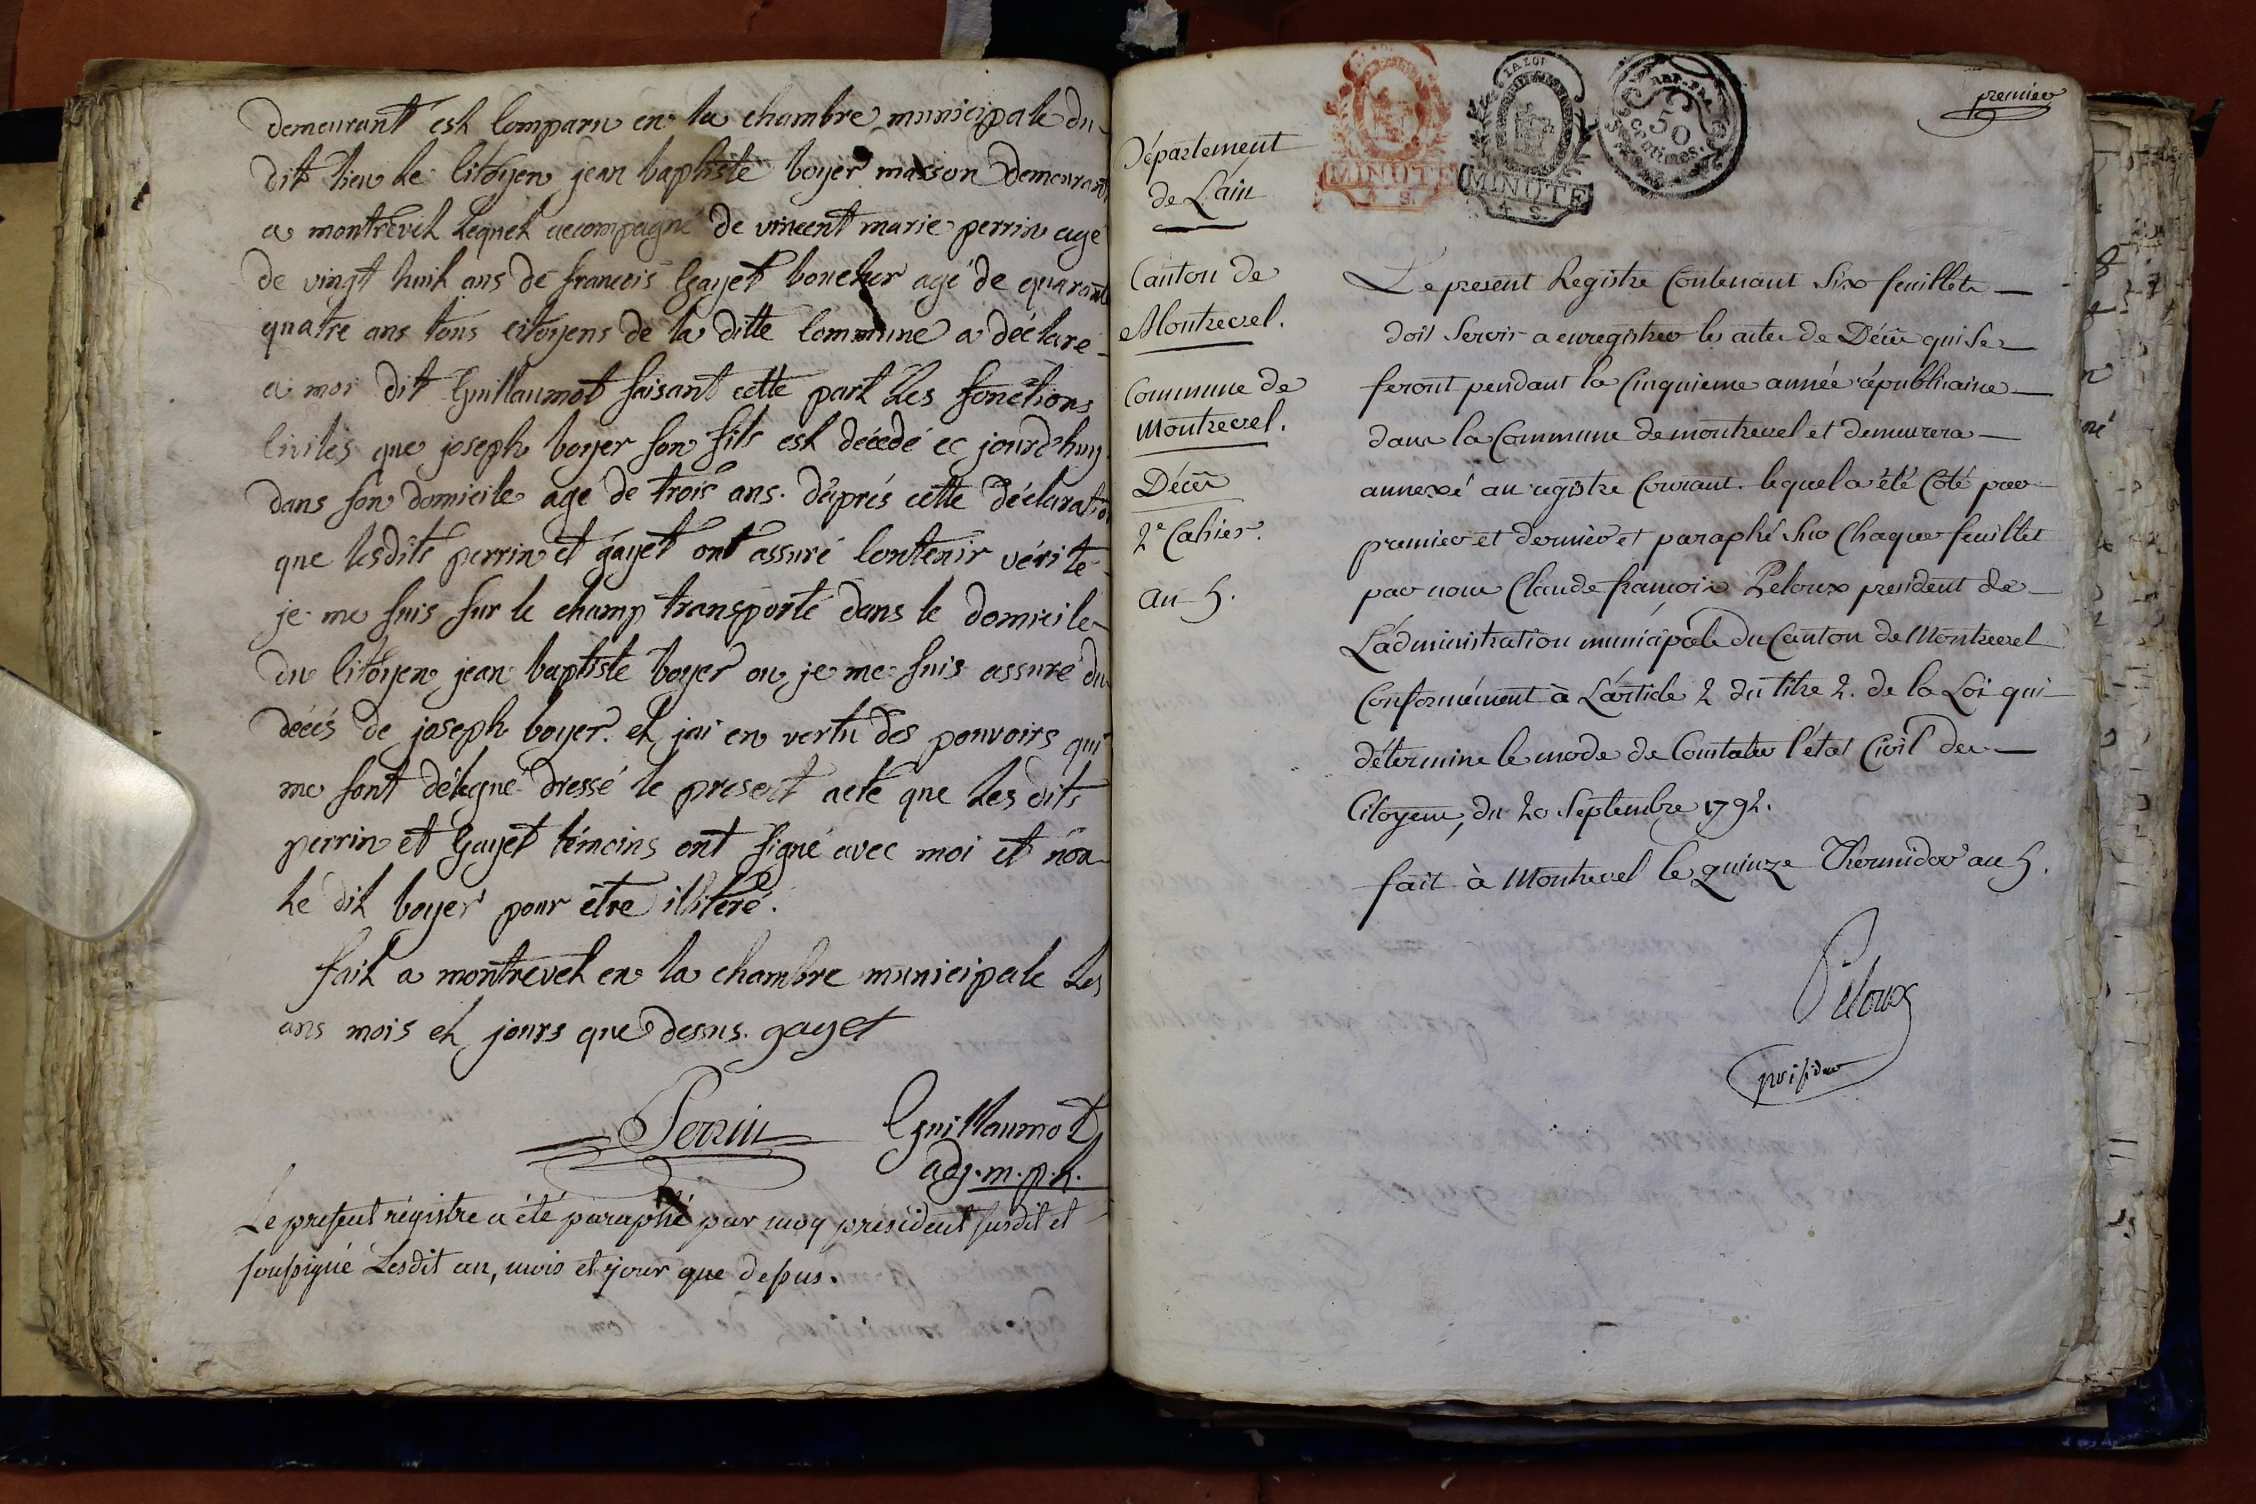 demeurant ést Comparu en la chambre municipale du
dit lieu le Citöyen jean baptiste boyer masson demeurant
a montrevel lequel accompagné de vincent marie perrin agé
de vingt huit ans de francois Gayet boucher agé de quarante
quatre ans tous citöyens de la ditte Commune a déclaré
a moi dit Guillaumot faisant cette part les fonctions
Civiles que joseph boyer son fils est décedé ce jourd'huy
dans son domicile agé de trois ans. d'áprés cette déclaration
que lesdits perrin et gayet ont assuré Contenir vérité
je me suis sur le champ transporté dans le domicile
du Citöyen jean baptiste boyer ou je me suis assuré du
décés de joseph boyer. et jai en vertu des pouvoirs qui
me sont délegué dressé le present acte que les dits
perrin et Gayet témoins ont signé avec moi et non
le dit boyer pour être illiteré.
fait a montrevel en la chambre municipale les
ans mois et jours que dessus. gayet
Perrin
Guillaumot
adj. m. p. l.
Le present régistre a été paraphé par moy président susdit et
soussigné Lesdit an, mois et jour que dessus.
MINUTE
4 S.
LA LOI
MINUTE
4 S.
REP. FRA
50
centimes.
premier
Département
de L'ain
Canton de
Montrevel.
Commune de
Montrevel.
Décès
2e Cahier.
an 5.
Le présent Registre Contenant Six feuillets
doit Servir a enregistrer les actes de Décès qui Se
feront pendant la Cinquieme année républicaine
dans la Commune de montrevel et demeurera
annexé au registre Courant. lequel a été Coté par
premier et dernier et paraphé Sur Chaque feuillet
par nous Claude françois Peloux president de
L'administration municipale du Canton de Montrevel
Conformément à L'article 2 du titre 2. de la Loi qui
détermine le mode de Constater l'état Civil des
Citoyens, du 20 Septembre 1792.
fait à Montrevel le quinze Thermidor an 5.
Péloux
président